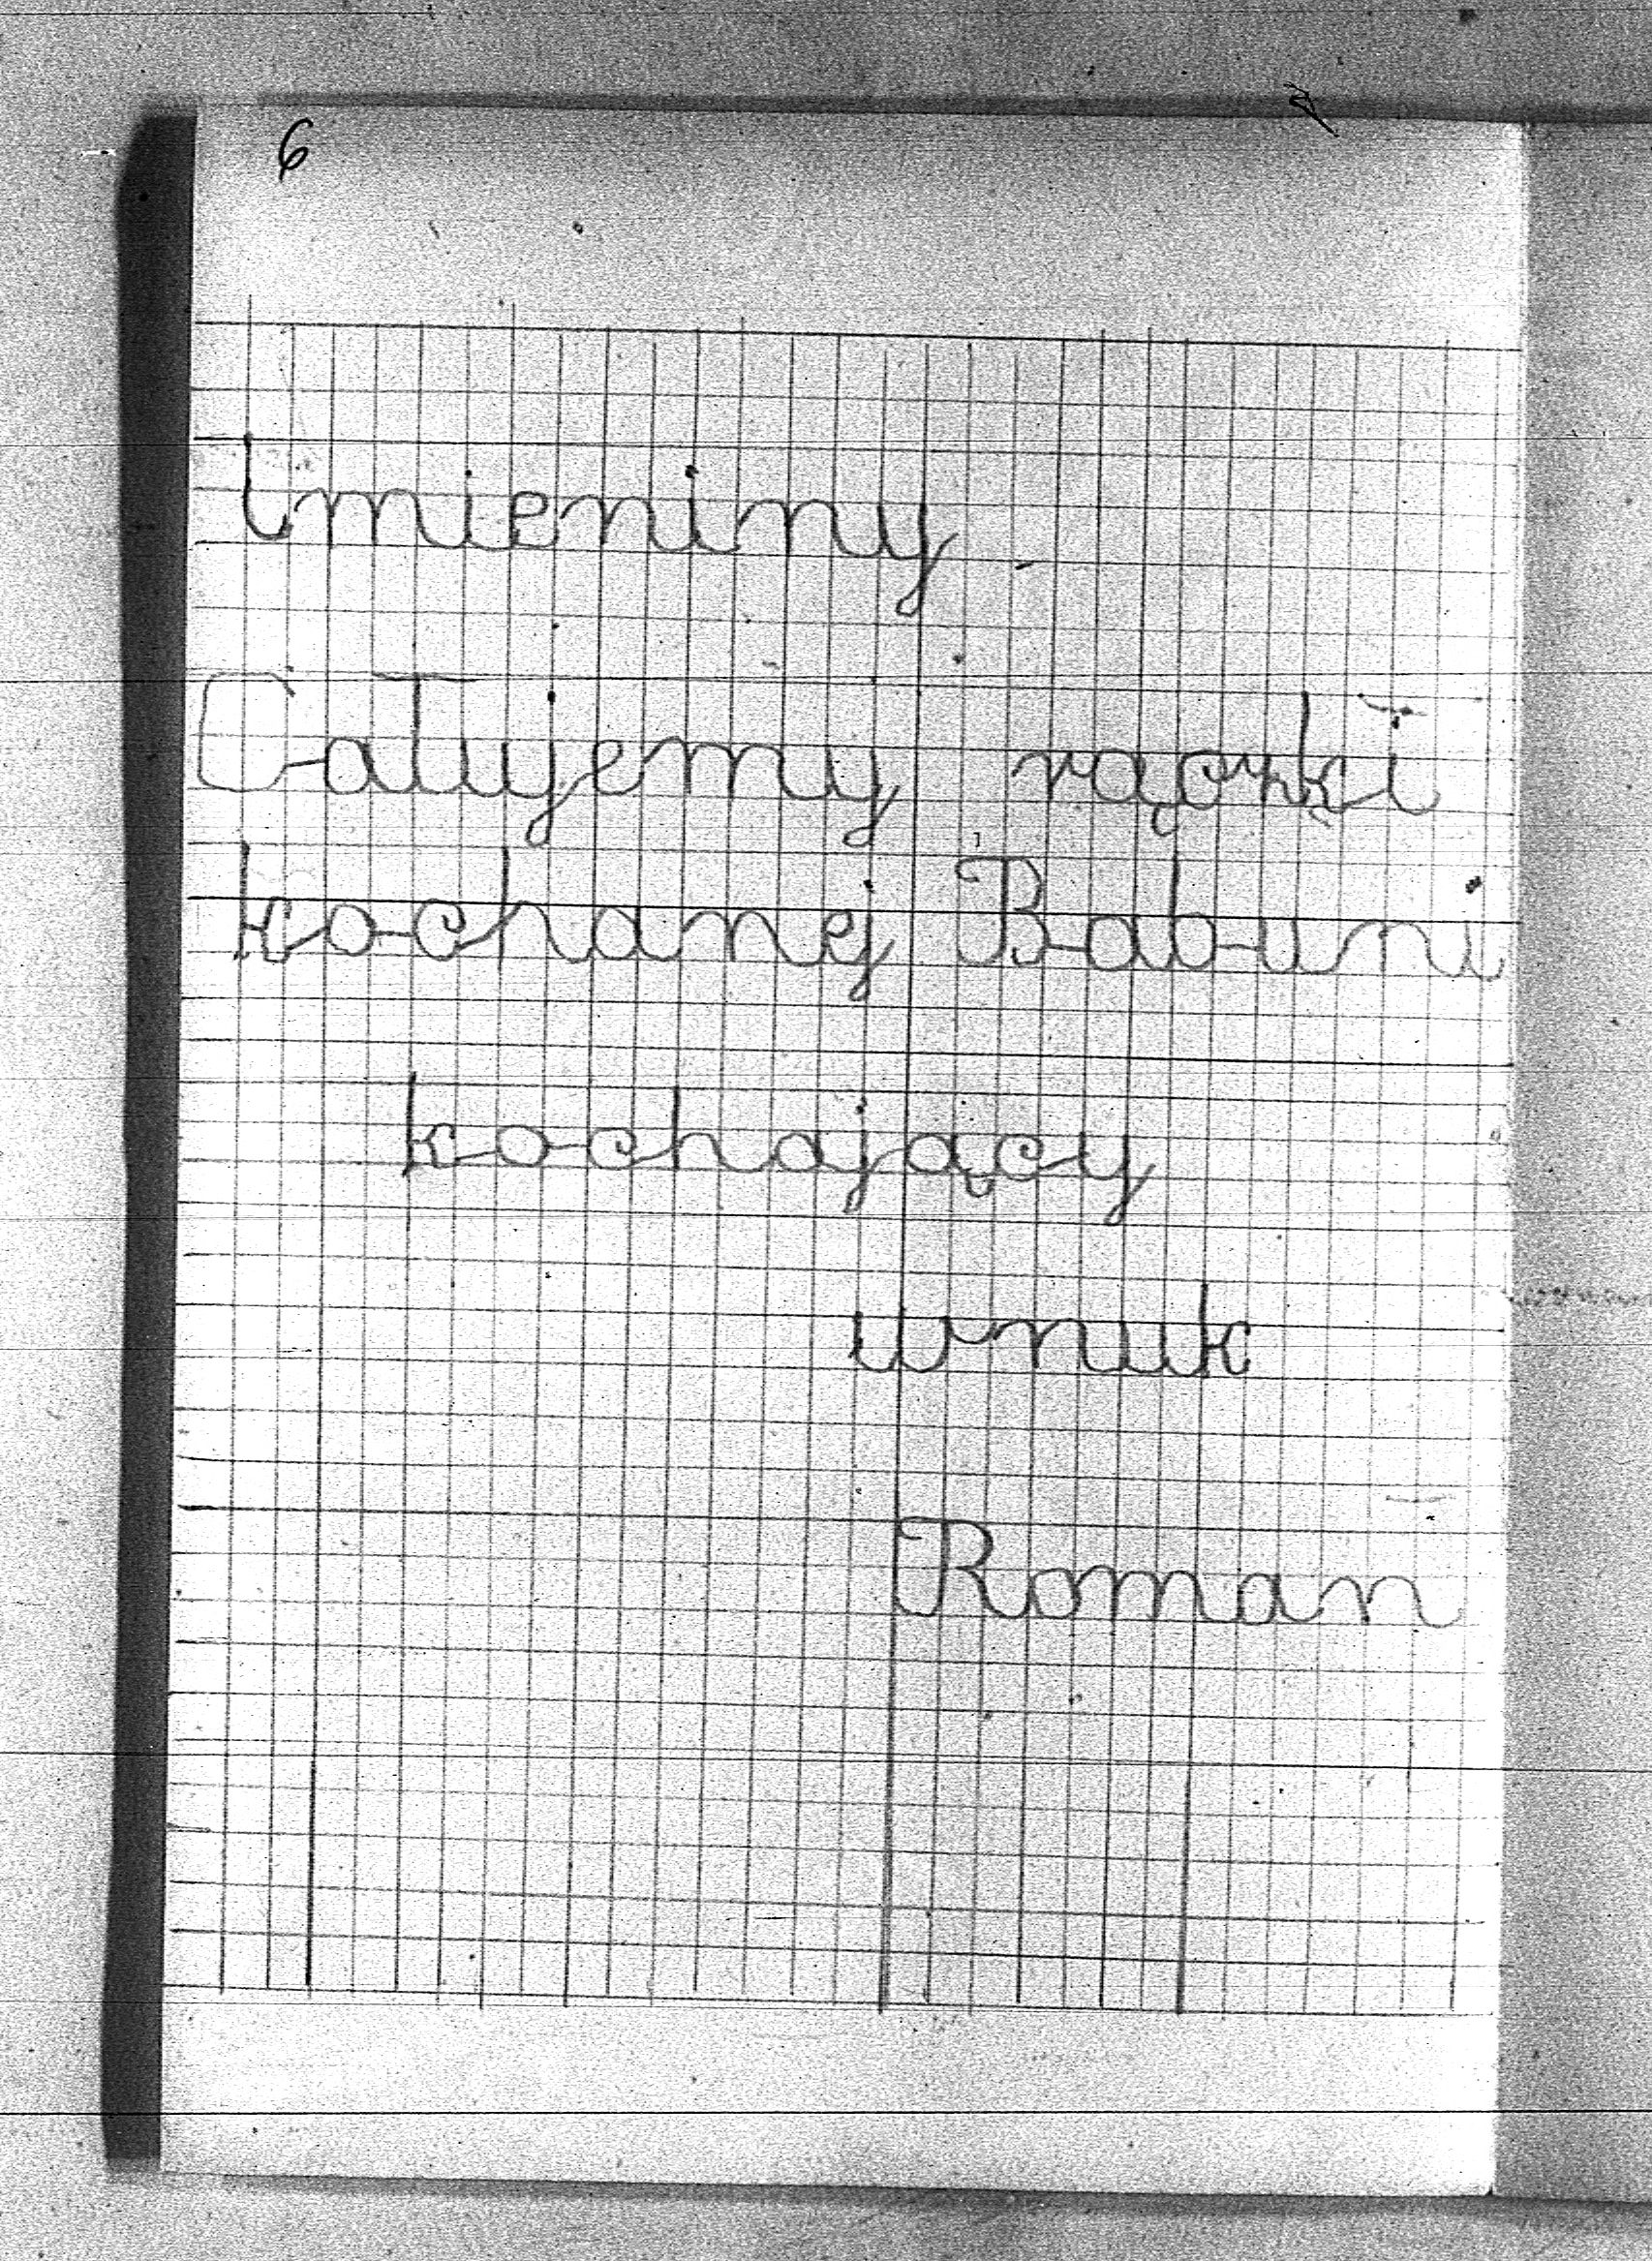 6
Imieniny
Całujemy rączki
kochanej Babuni
kochający
wnuk
Roman